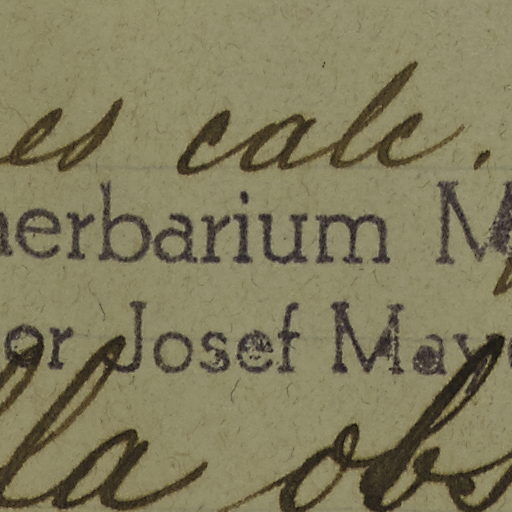 es calc.
herbarium M
or Josef May
lla obs